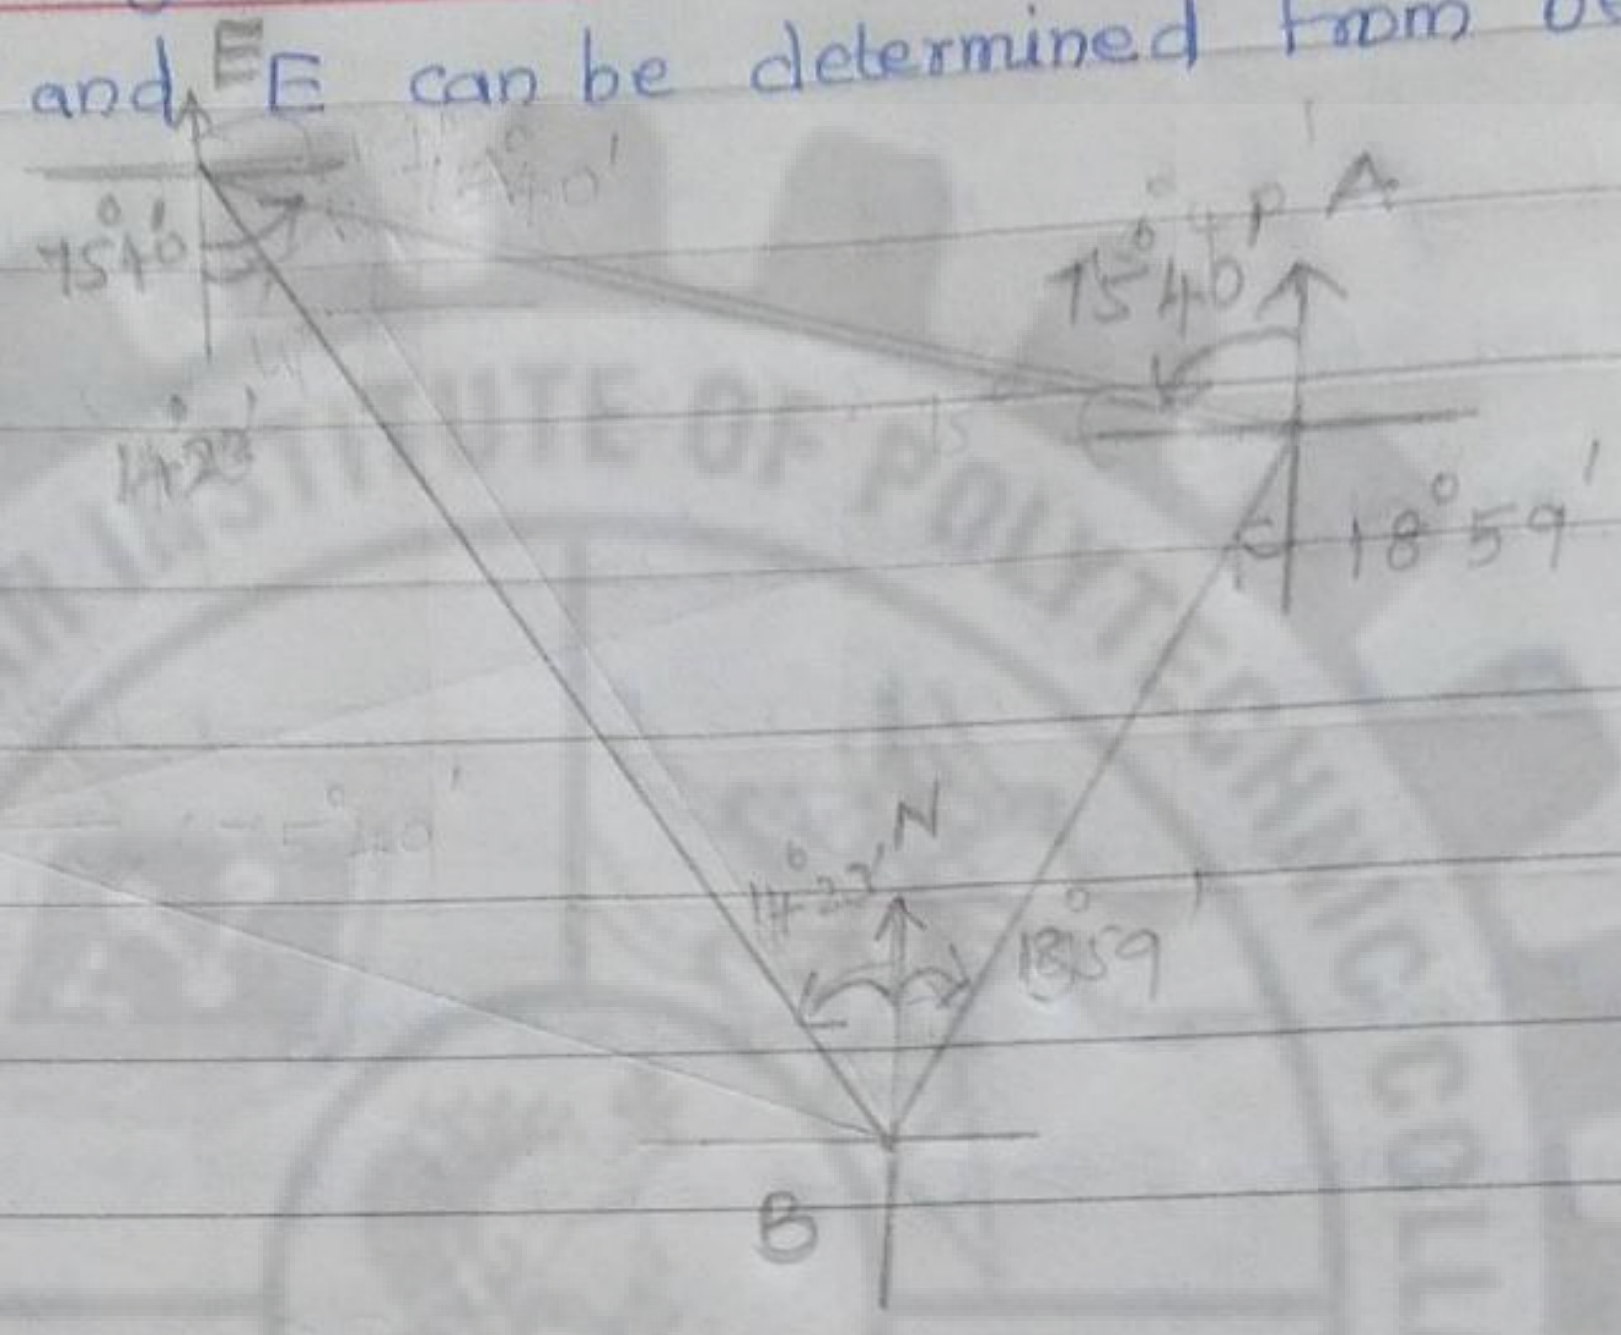 and E E can be determined from
75°40'
A
75°40'
14°22'
18°59'
N
14°22'
18°59'
B
INSTITUTE OF POLYTECHNIC COLL